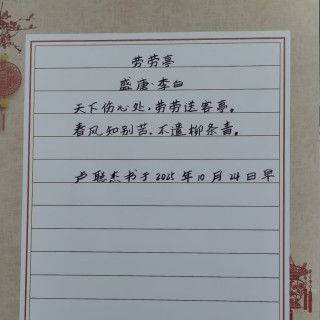 劳劳亭
盛唐·李白
天下伤心处，劳劳送客亭。
春风知别苦，不遣柳条青。
卢联杰书于2025年10月24日早